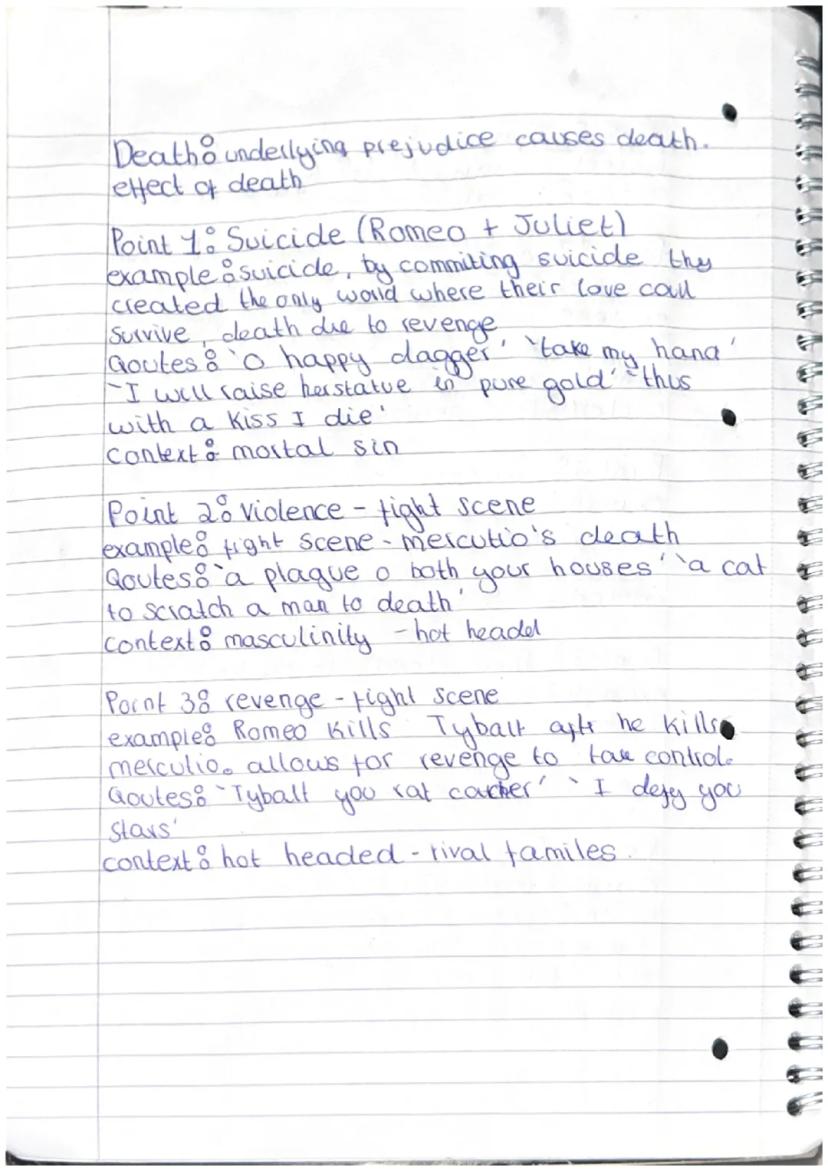 Death: underlying prejudice causes death.
effect of death
Point 1: Suicide (Romeo + Juliet)
example: suicide, by commiting suicide they
created the only world where their love coul
survive, death due to revenge
Qoutes: 'O happy dagger' 'take my hand'
'I will raise her statue in pure gold' 'thus
with a kiss I die'
context: mortal sin
Point 2: Violence - fight scene
example: fight scene - mercutio's death
Qoutes: 'a plague o both your houses' 'a cat
to scratch a man to death'
context: masculinity - hot headed
Point 3: revenge - fight scene
example: Romeo kills Tybalt after he kills
mercutio. allows for revenge to take control.
Qoutes: 'Tybalt you rat catcher' 'I defy you
stars'
context: hot headed - rival familes.